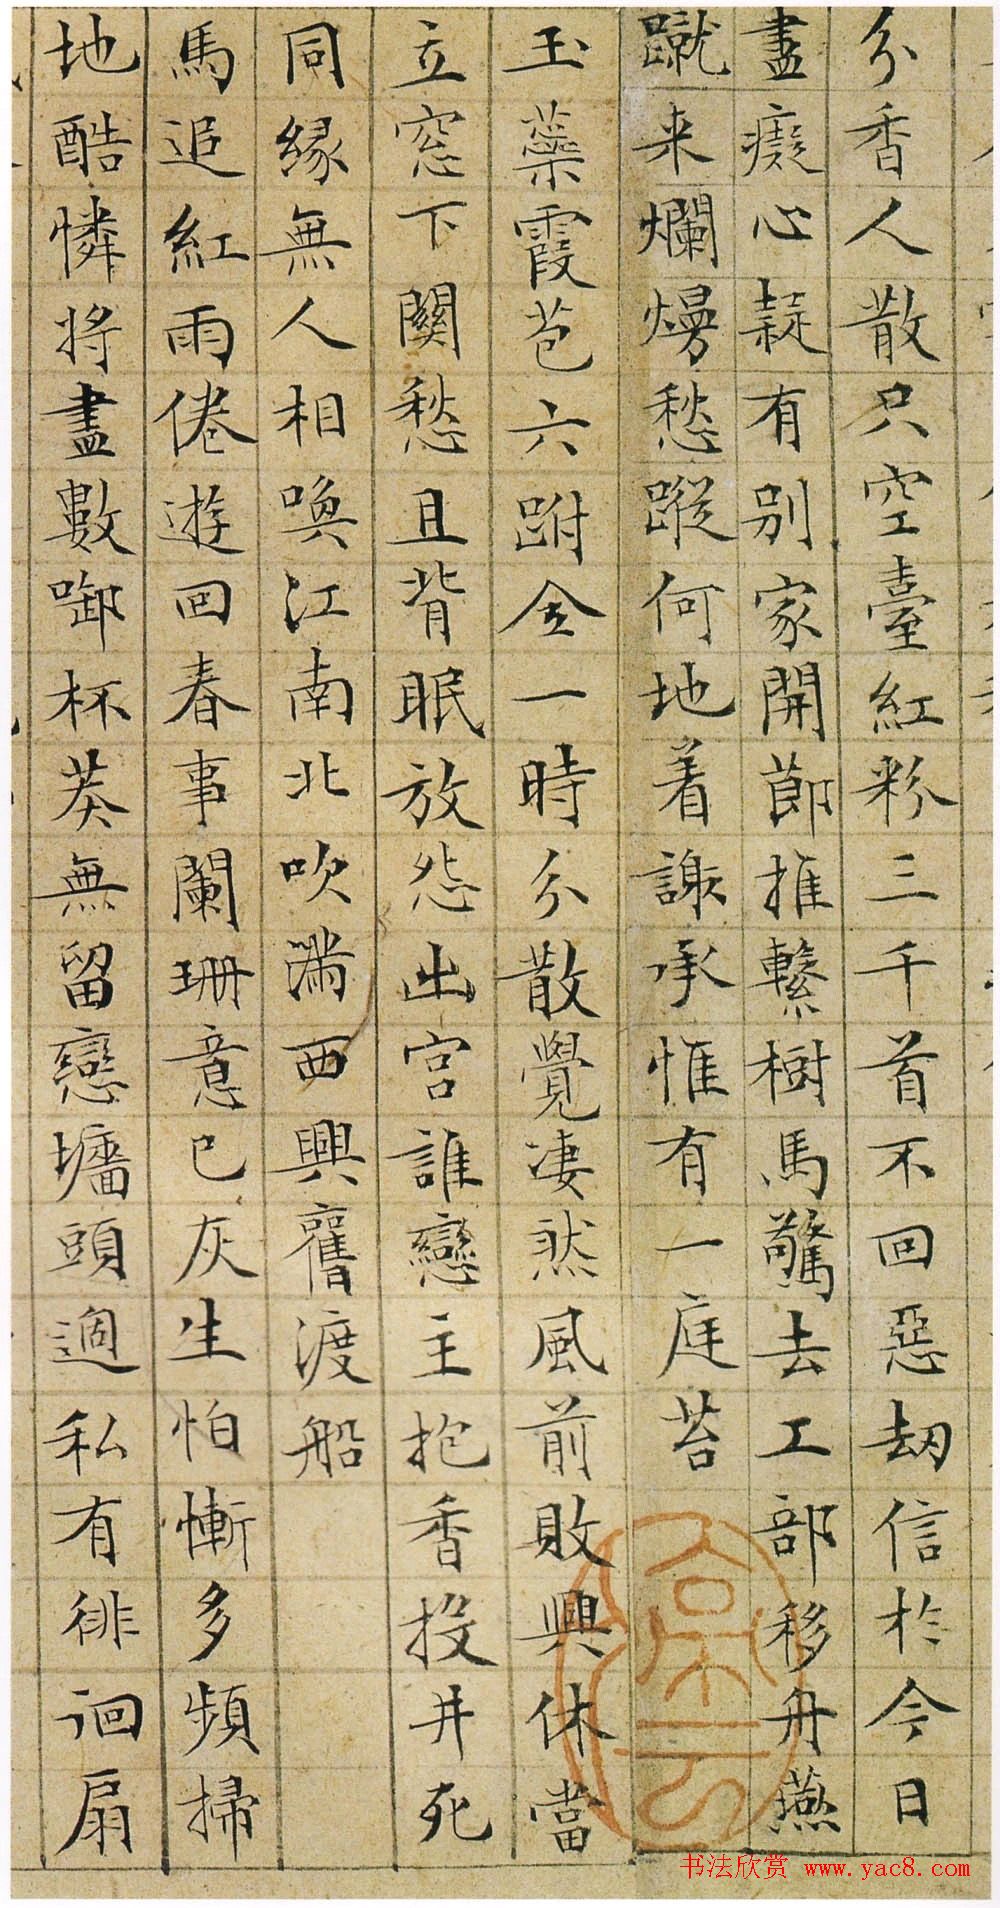 分香人散只空臺紅粉三千首不回惡劫信於今日
盡癡心疑有別家開節推繫樹馬驚去工部移舟燕
蹴来爛熳愁蹤何地着謝承惟有一庭苔
玉蘂霞苞六跗全一時分散覺凄然風前敗興休當
立窓下關愁且背眠放怨出宮誰戀主抱香投井死
同緣無人相喚江南北吹滿西興舊渡船
馬追紅雨倦遊回春事闌珊意已灰生怕慚多頻掃
地酷憐將盡數啣杯莽無留戀墻頭過私有徘徊扇
书法欣赏 www.yac8.com